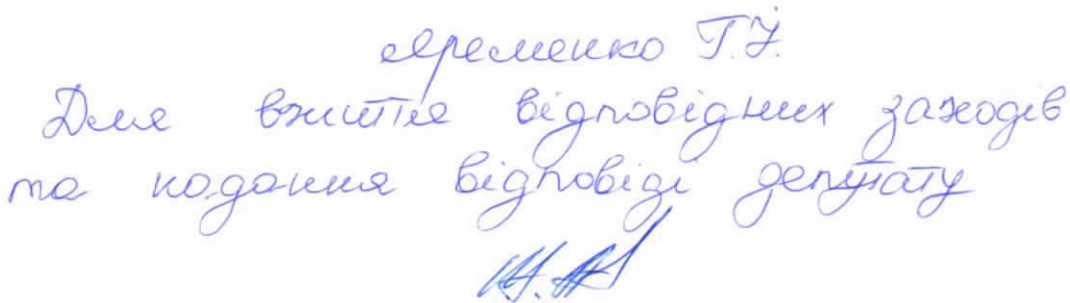 Яременко Г.У.
Для вжиття відповідних заходів
та надання відповіді депутату